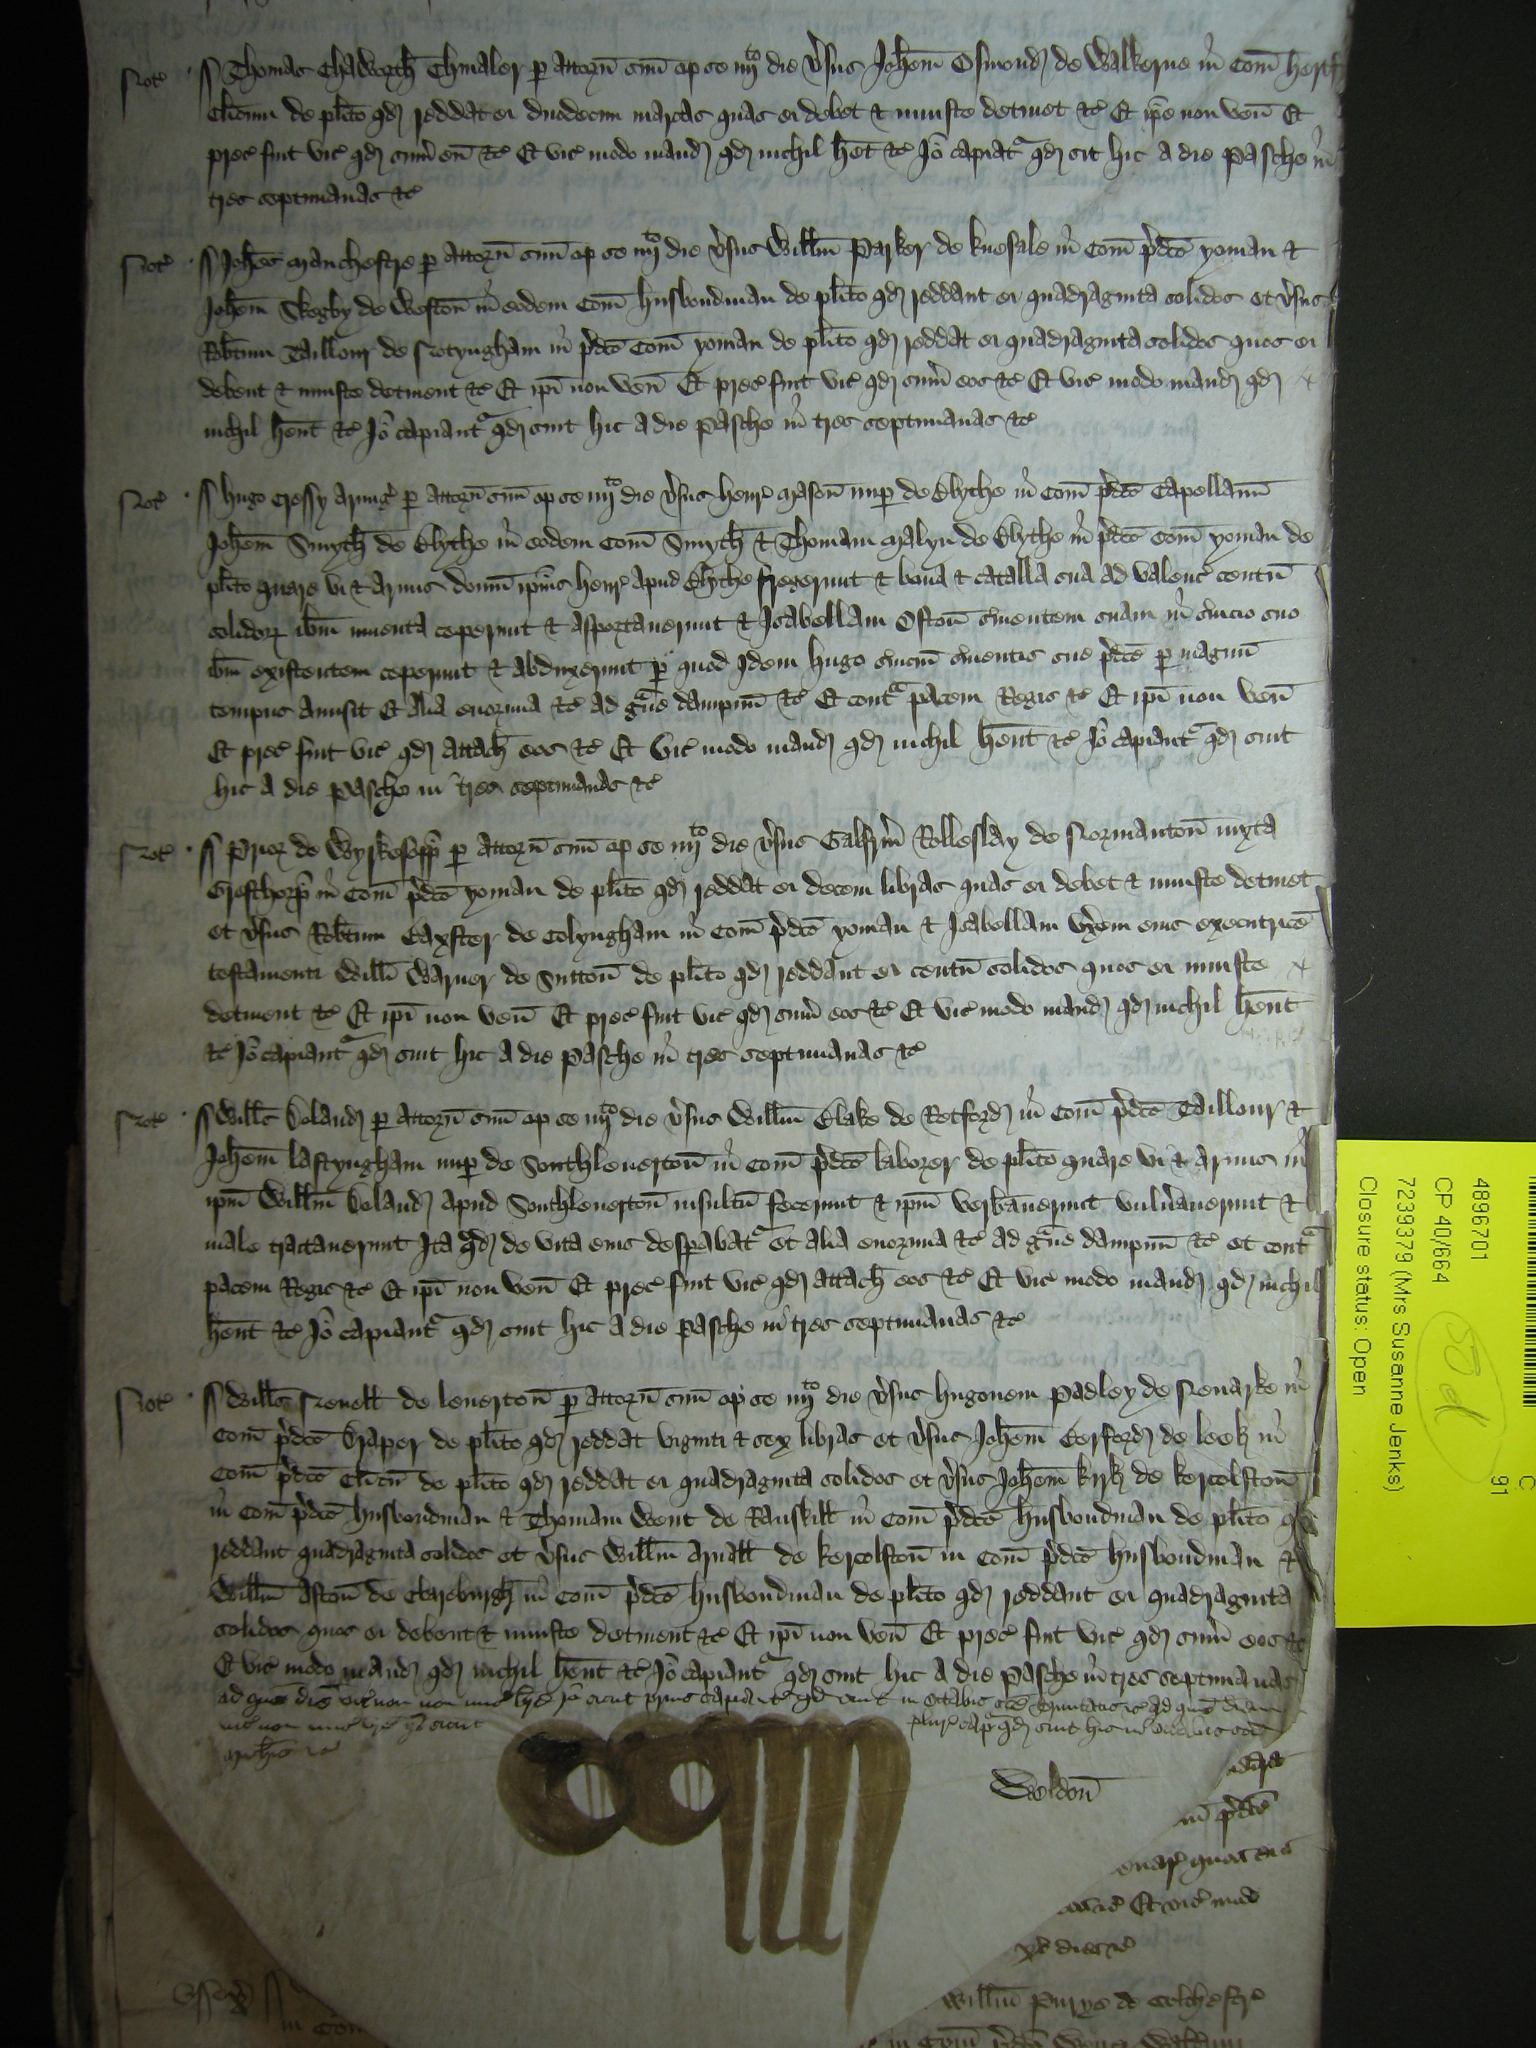 Not' Thomas Chaworth Chivaler p attorn suu op se iiijto die vsus Johem Osmond de Walkerne in Com Hertf
Clicum de plito qd reddat ei duodecim marcas quas ei debet & iniuste detinet &c Et ipe non ven Et
prec fuit vic qd sum eu &c Et vic modo mand qd nichil het &c Io capiatr qd sit hic a die Pasche in
tres septimanas &c
Not' Johes Manchestre p attorn suu op se iiijto die vsus Willm Parker de Knesale in Com pdco yoman &
Johem Skegby de Weston in eodem Com husbondman de plito qd reddant ei quadraginta solidos et vsus
Robtum Taillour de Notyngham in pdco Com yoman de plito qd reddat ei quadraginta solidos quos ei
debent & iniuste detinent &c Et ipi non ven Et prec fuit vic qd sum eos &c Et vic modo mand qd
nichil hent &c Io capiantr qd sint hic a die Pasche in tres septimanas &c
Not' Hugo Cressy Armig p attorn suu op se iiijto die vsus Henr Mason nup de Blythe in Com pdco Capellanu
Johem Smyth de Blythe in eodem Com Smyth & Thomam Malyn de Blythe in pdco Com yoman de
plito quare vi & armis domu ipius Henr apud Blythe fregerunt & bona & catalla sua ad valenc centu
solidor ibm inuenta ceperunt & asportauerunt & Isabellam Oston suientem suam in suicio suo
ibm existentem ceperunt & abduxerunt p quod idem Hugo suiciu suientis sue pdce p magnu
tempus amisit Et alia enormia &c ad graue dampnu &c Et contra pacem Regis &c Et ipi non ven
Et prec fuit vic qd attach eos &c Et vic modo mand qd nichil hent &c Io capiantr qd sint
hic a die Pasche in tres septimanas &c
Not' Prior de Wyrkesopp p attorn suu op se iiijto die vsus Galfrm Rolleslay de Normanton iuxta
in Com pdco yoman de plito qd reddat ei decem libras quas ei debet & iniuste detinet
et vsus Robtum Baxster de Colyngham in Com pdco yoman & Isabellam vxem eius executrice
testamenti Willi Warner de Sutton de plito qd reddant ei centu solidos quos ei iniuste
detinent &c Et ipi non ven Et prec fuit vic qd sum eos &c Et vic modo mand qd nichil hent
&c Io capiantr qd sint hic a die Pasche in tres septimanas &c
Not' Wills Boland p attorn suu op se iiijto die vsus Willm Blake de Retford in Com pdco Taillour &
Johem Lastyngham nup de Southleuerton in Com pdco laborer de plito quare vi & armis in
ipm Willm Boland apud Southleuerton insultu fecerunt & ipm verbauerunt vulnauerunt &
male tractauerunt Ita qd de vita eius despabatr et alia enormia &c ad graue dampnu &c et contra
pacem Regis &c Et ipi non ven Et prec fuit vic qd attach eos &c Et vic modo mand qd nichil
hent &c Io capiantr qd sint hic a die Pasche in tres septimanas &c
Not' Wills Neuell de Leuerton p attorn suu op se iiijto die vsus Hugonem Padley de Newarke in
Com pdco Draper de plito qd reddat viginti & sex libras et vsus Johem Cerford de Leek in
Com pdco Clicu de plito qd reddat ei quadraginta solidos et vsus Johem Kirk de Kercolston
in Com pdco husbondman & Thomam Went de Ranskill in Com pdco husbondman de plito qd
reddant quadraginta solidos et vsus Willm Arnall de Kercolston in Com pdco husbondman &
Willm Aston de Clareburgh in Com pdco husbondman de plito qd reddant ei quadraginta
solidos quos ei debent & iniuste detinent &c Et ipi non ven Et prec fuit vic qd sum eos &c
Et vic modo mand qd nichil hent &c Io capiantr qd sint hic a die Pasche in tres septimanas
ad que die vic non misit bre Io sicut prius capiantr qd sint in Octabis sce Trinitatis &c ad que diem
vic non misit bre Io sicut plur capr qd sint hic in Octabis sci
Michis &c
Weldon
in pdco
Et vic mod
dies &c
Willm Purye de Colchestre
in Com
C
91
4896701
CP 40/664
7239379 (Mrs Susanne Jenks)
Closure status: Open